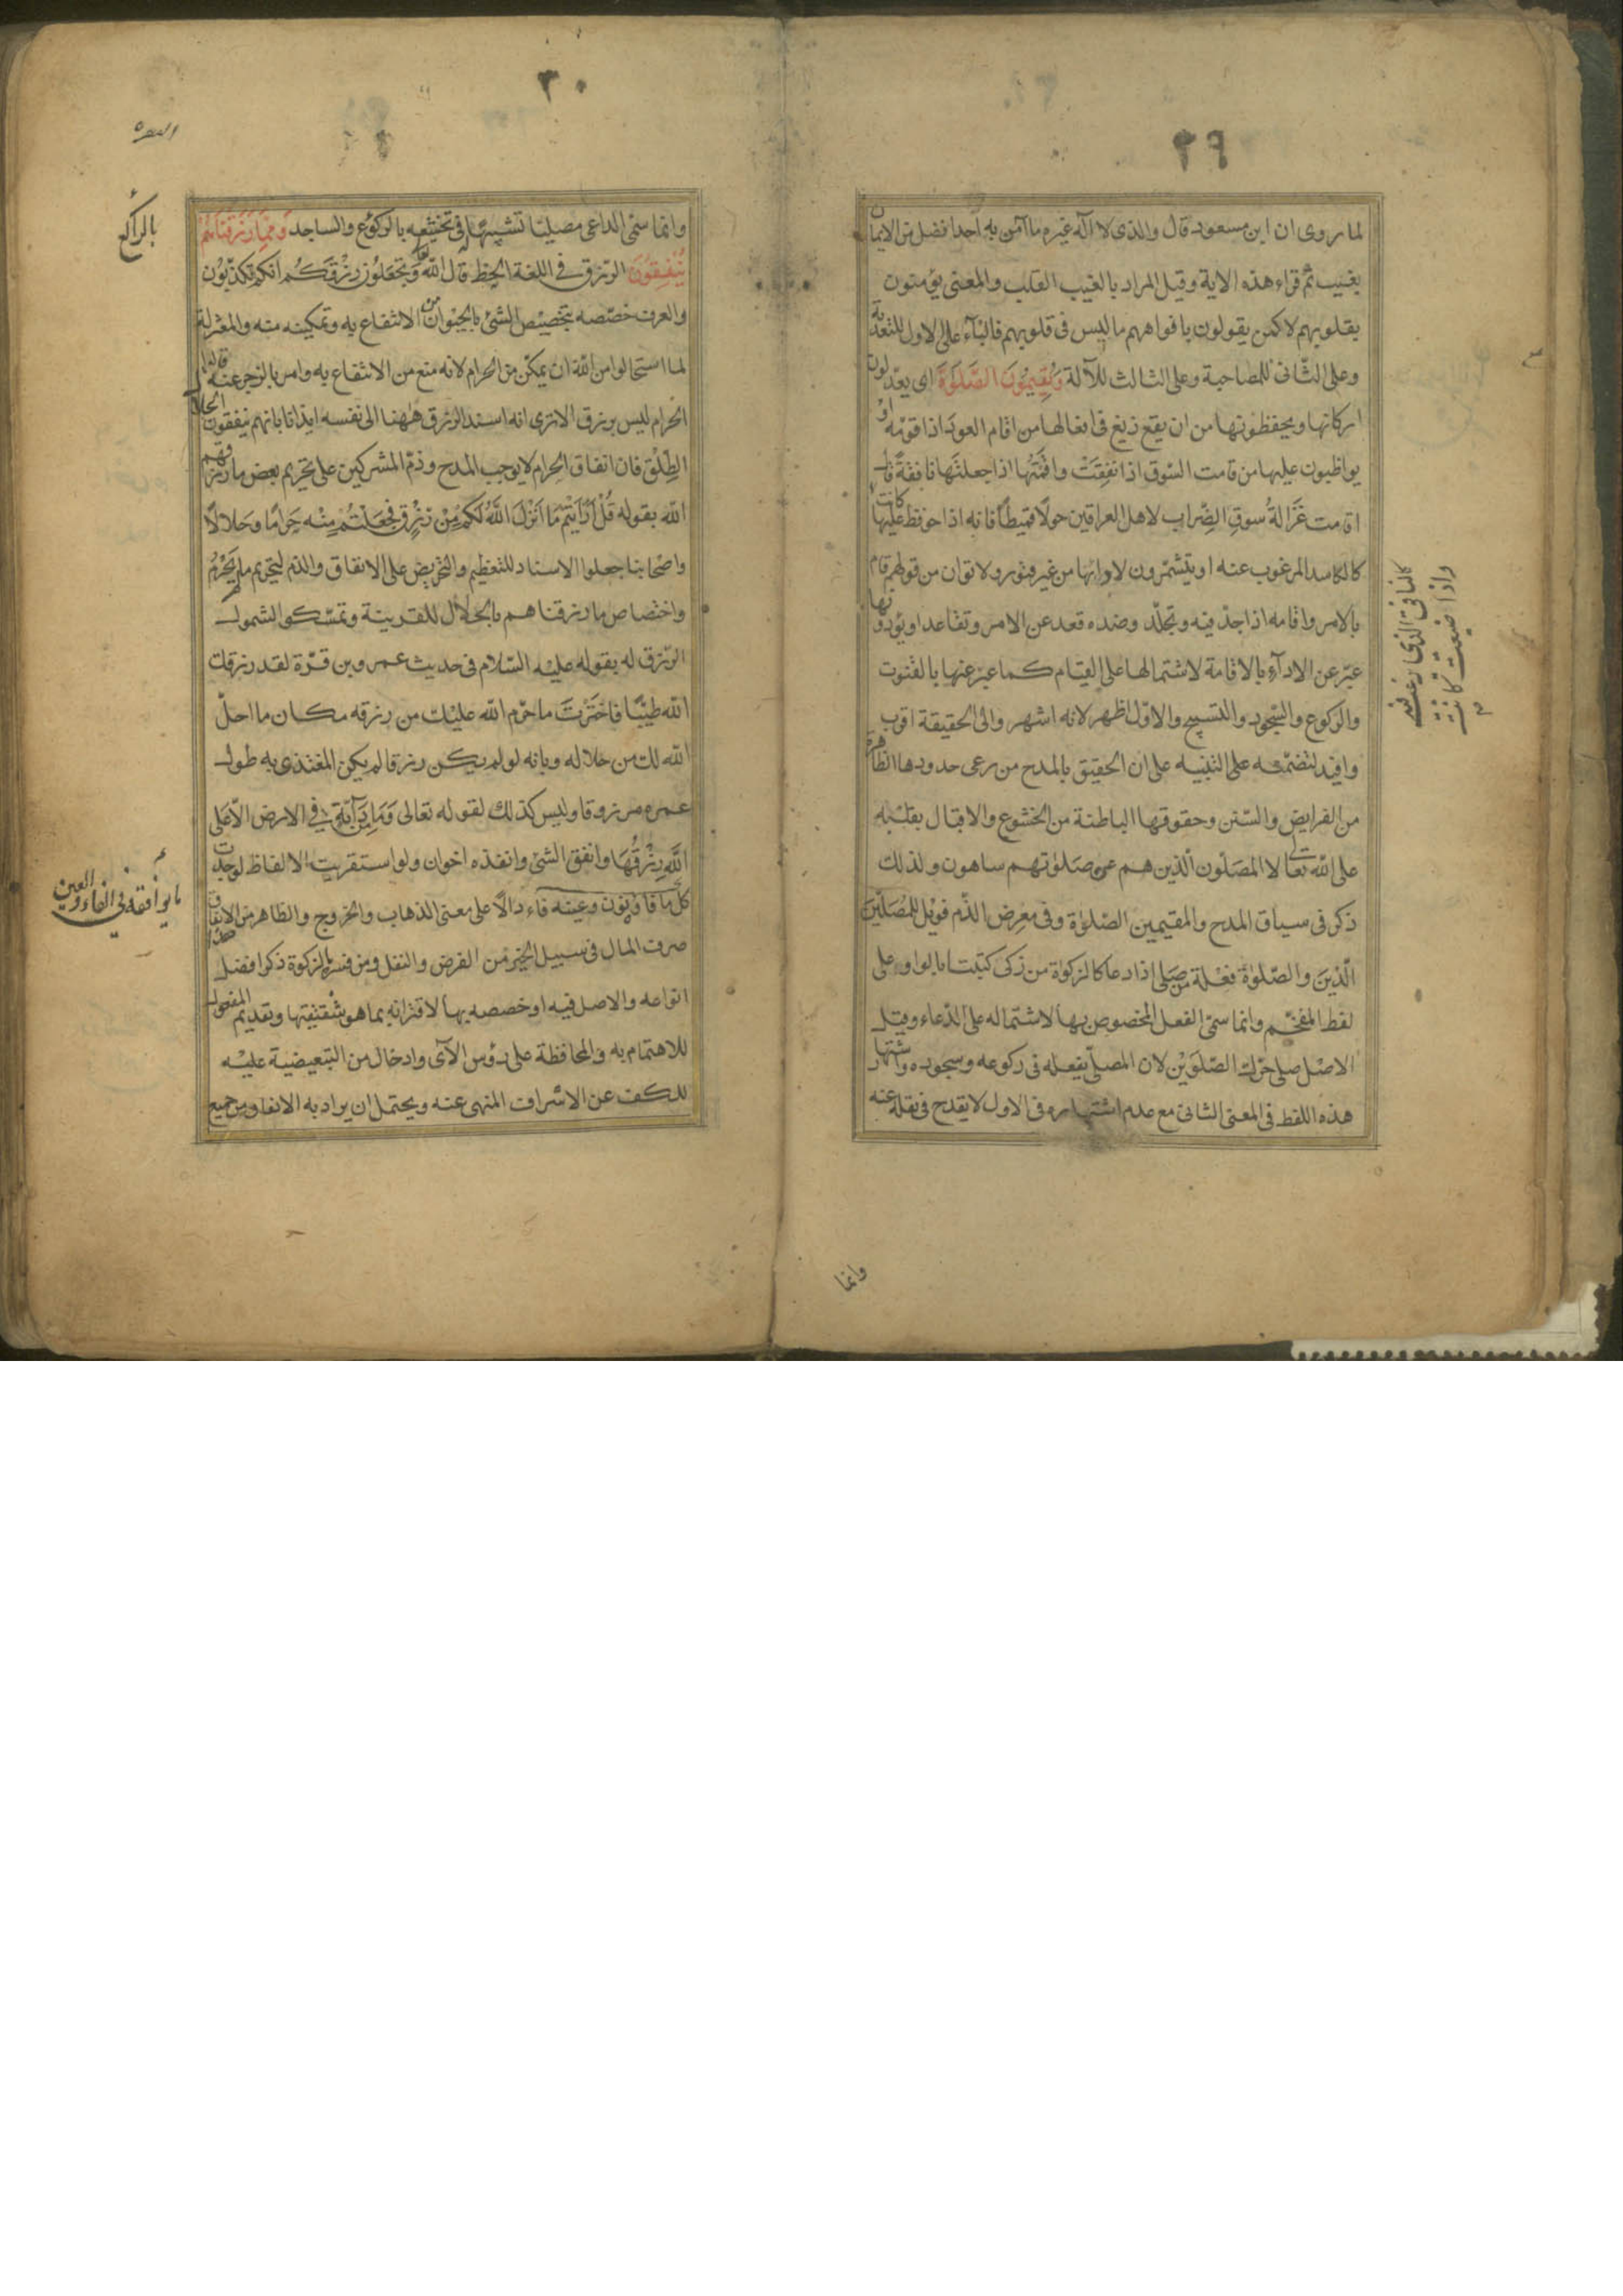 ٢٩
لما روى ان ابن مسعود قال والذى لا اله غيره ما آمن به احد افضل من الايمان
بغيب ثم قراء هذه الاية وقيل المراد بالغيب القلب والمعنى يؤمنون
بقلوبهم لا كمن يقولون بافواههم ما ليس فى قلوبهم فالبآء على الاول للتعدية
وعلى الثانى للمصاحبة وعلى الثالث للآلة وَيُقِيمُونَ الصَّلٰوةَ اى يعدّلون
اركانها ويحفظونها من ان يقع زيغ فى افعالها من اقام العود اذا قوّمه او
يواظبون عليها من قامت السّوق اذا نفقت واقمتها اذا جعلتها نافقة قال
اقامت غَزَالةُ سوقِ الضِّراب لاهل العراقين حولا قميطاً فانه اذا حوفظ عليها كانت
كالنافق الذى يرغب فيه
واذا ضيعت كانت
كالكاسد المرغوب عنه او يتشمّرون لادائها من غير فتور ولا توان من قولهم قام
بالامر واقامه اذا جدّ فيه وتجلّد وضده قعد عن الامر وتقاعد او يؤدونها
عبّر عن الادآء بالاقامة لاشتمالها على القيام كما عبر عنها بالقنوت
والركوع والسّجود والتسبيح والاوّل اظهر لانه اشهر والى الحقيقة اقرب
وافيد لتضمّنه على التنبيه على ان الحقيق بالمدح من رعى حدودها الظاهرة
من الفرايض والسّنن وحقوقها الباطنة من الخشوع والاقبال بقلبه
على الله تعالى لا المصلّون الذين هم عن صلوتهم ساهون ولذلك
ذكر فى سياق المدح والمقيمين الصّلوة وفى معرض الذّم فويل للمصلّين
الّذين والصّلوة فعلة من صلى اذا دعا كالزكوة من زكى كتبت بالواو على
لفظ المفخّم وانما سمّى الفعل المخصوص بها لاشتماله على الدّعاء وقيل
الاصل صلى حرّك الصّلوين لان المصلّى يفعله فى ركوعه وسجوده واشتهار
هذه اللفظ فى المعنى الثانى مع عدم اشتهاره فى الاول لا يقدح فى نقله عنه
وانما
٣٠
البقره
وانما سمّى الداعى مصليا تشبيها فى تخشعه بالركوع والساجد وَمِمَّا رَزَقْنَاهُمْ
بالراكع
يُنْفِقُونَ الرزق فى اللغة الحظ قال الله وَتَجعَلون رزقَكُم انكم تكذّبون
والعرف خصّصه بتخصيص الشئ بالحيوان من الانتفاع به وتمكينه منه والمعتزلة
لما استحالوا من الله ان يمكّن من الحرام لانه منع من الانتفاع به وامر بالزجر عنه قالوا
الحرام ليس برزق الا ترى انه اسند الرزق ههنا الى نفسه ايذانا بانهم ينفقون الحلال
الطلق فان انفاق الحرام لا يوجب المدح وذمّ المشركين على تحريم بعض ما رزقهم
الله بقوله قُلْ اَرَاَيْتُمْ مَا اَنْزَلَ اللّٰهُ لَكُمْ مِنْ رِزْقٍ فَجَعَلْتُمْ مِنْه حَرامًا وحَلالًا
واصحابنا جعلوا الاسناد للتعظيم والتحريض على الانفاق والذم لتحريم ما لم يحرم
واختصاص ما رزقناهم بالحلال للقرينة وتمسّكوا لشمول
الرّزق له بقوله عليه السّلام فى حديث عمرو بن قرّة لقد رزقك
الله طيّبا فاخترت ما حرّم الله عليك من رزقه مكان ما احلّ
الله لك من حلاله وبانه لو لم يكن رزقا لم يكن المغتذى به طول
عمره مرزوقا وليس كذلك لقوله تعالى وَمَا مِن دَآبَّةٍ فى الارض الّا عَلَى
اللّٰهِ رِزْقُهَا وانفق الشئ وانفذه اخوان ولو استقريت الالفاظ لوجدت
كل ما فاؤه نون وعينه فاء دالًا على معنى الذهاب والخروج والظاهر من الانفاق
ما يوافقه فى الفاء والعين
صرف المال فى سبيل الخير من الفرض والنفل ومن فسره بالزكوة ذكر افضل
انواعه والاصل فيه او خصصه بها لاقترانه بما هو شقيقتها وتقديم المفعول
للاهتمام به والمحافظة على رؤس الآى وادخال من التبعيضية عليه
للكف عن الاسراف المنهى عنه ويحتمل ان يراد به الانفاق من جميع